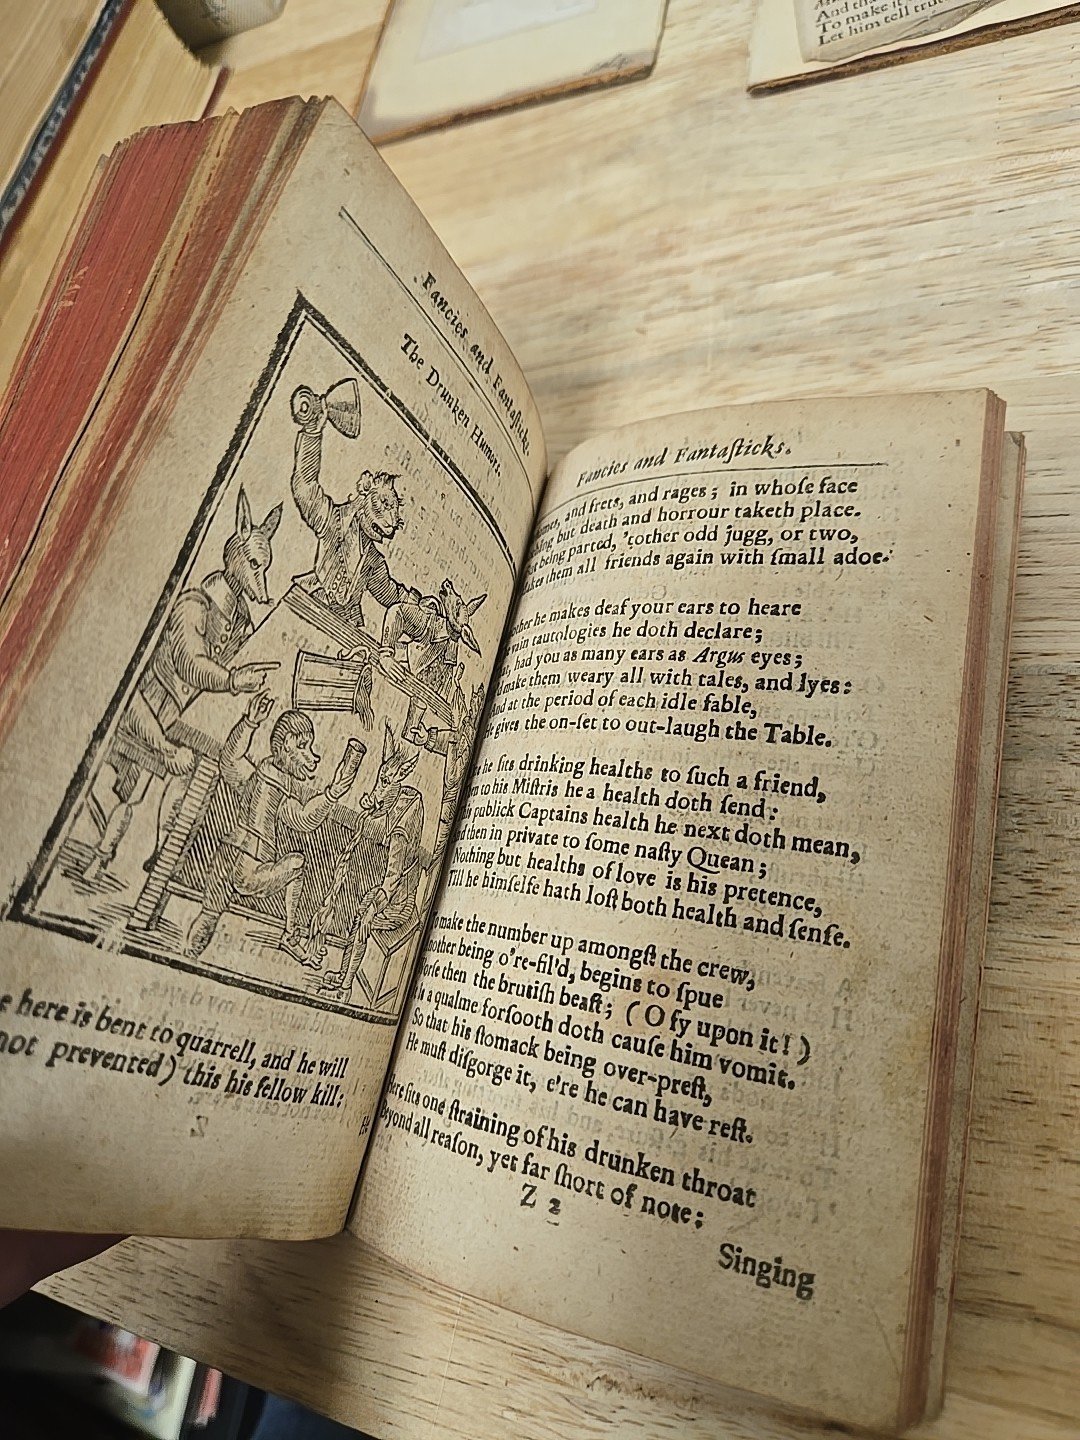 And tha
To make it
Let him tell trut
Fancies and Fantaſticks.
The Drunken Humors.
here is bent to quarrell, and he will
not prevented) this his fellow kill:
Z
Fancies and Fantaſticks.
and frets, and rages; in whoſe face
but death and horrour taketh place.
being parted, 'tother odd jugg, or two,
them all friends again with ſmall adoe.
he makes deaf your ears to heare
vain tautologies he doth declare;
had you as many ears as Argus eyes;
make them weary all with tales, and lyes:
And at the period of each idle fable,
He gives the on-ſet to out-laugh the Table.
he ſits drinking healths to ſuch a friend,
to his Miſtris he a health doth ſend:
publick Captains health he next doth mean,
And then in private to ſome naſty Quean;
Nothing but healths of love is his pretence,
Till he himſelfe hath loſt both health and ſenſe.
To make the number up amongſt the crew,
Another being o're-fil'd, begins to ſpue
Worſe then the brutiſh beaſt; (O fy upon it!)
a qualme forſooth doth cauſe him vomit.
So that his ſtomack being over-preſt,
He muſt diſgorge it, e're he can have reſt.
Here ſits one ſtraining of his drunken throat
Beyond all reaſon, yet far ſhort of note;
Z 2
Singing